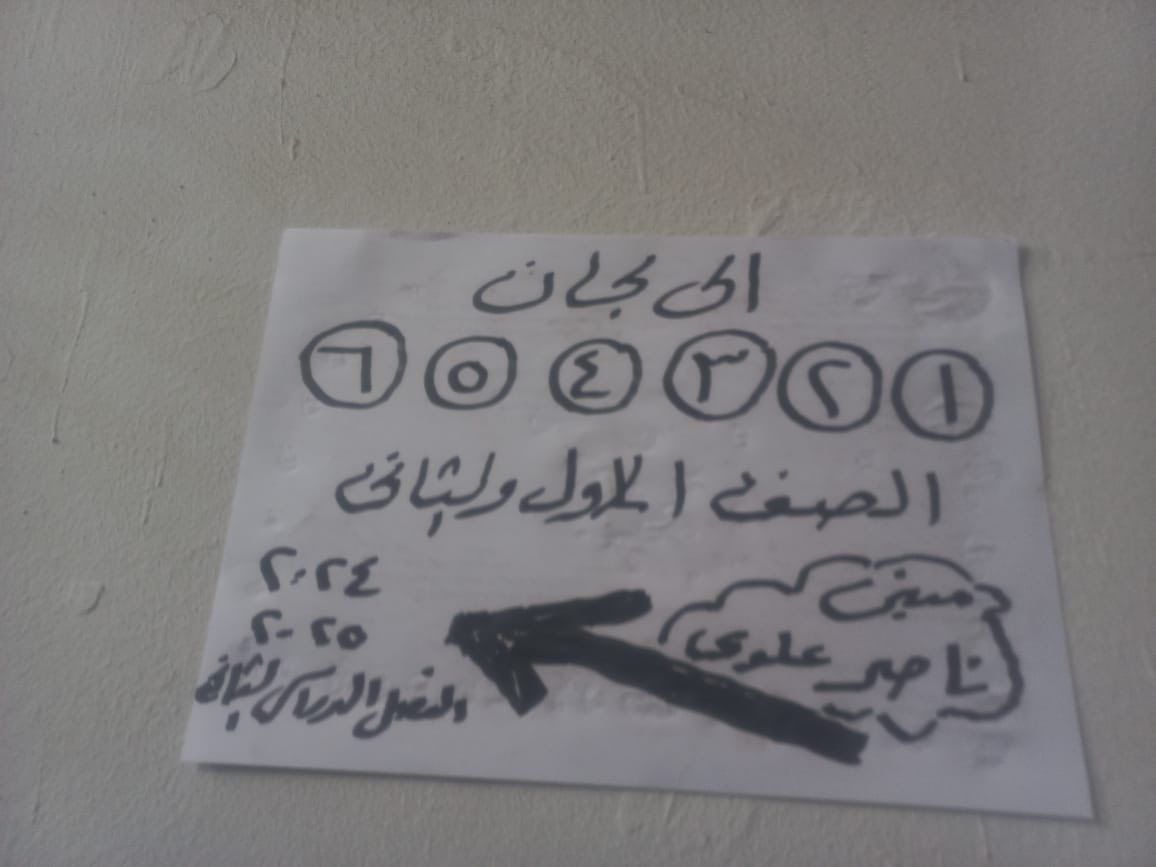 الى لجان
١ ٢ ٣ ٤ ٥ ٦
الصف الاول ولثانى
مبنى
ناصر علوى
٢٠٢٤
٢٠٢٥
الفصل الدراسى لثانى